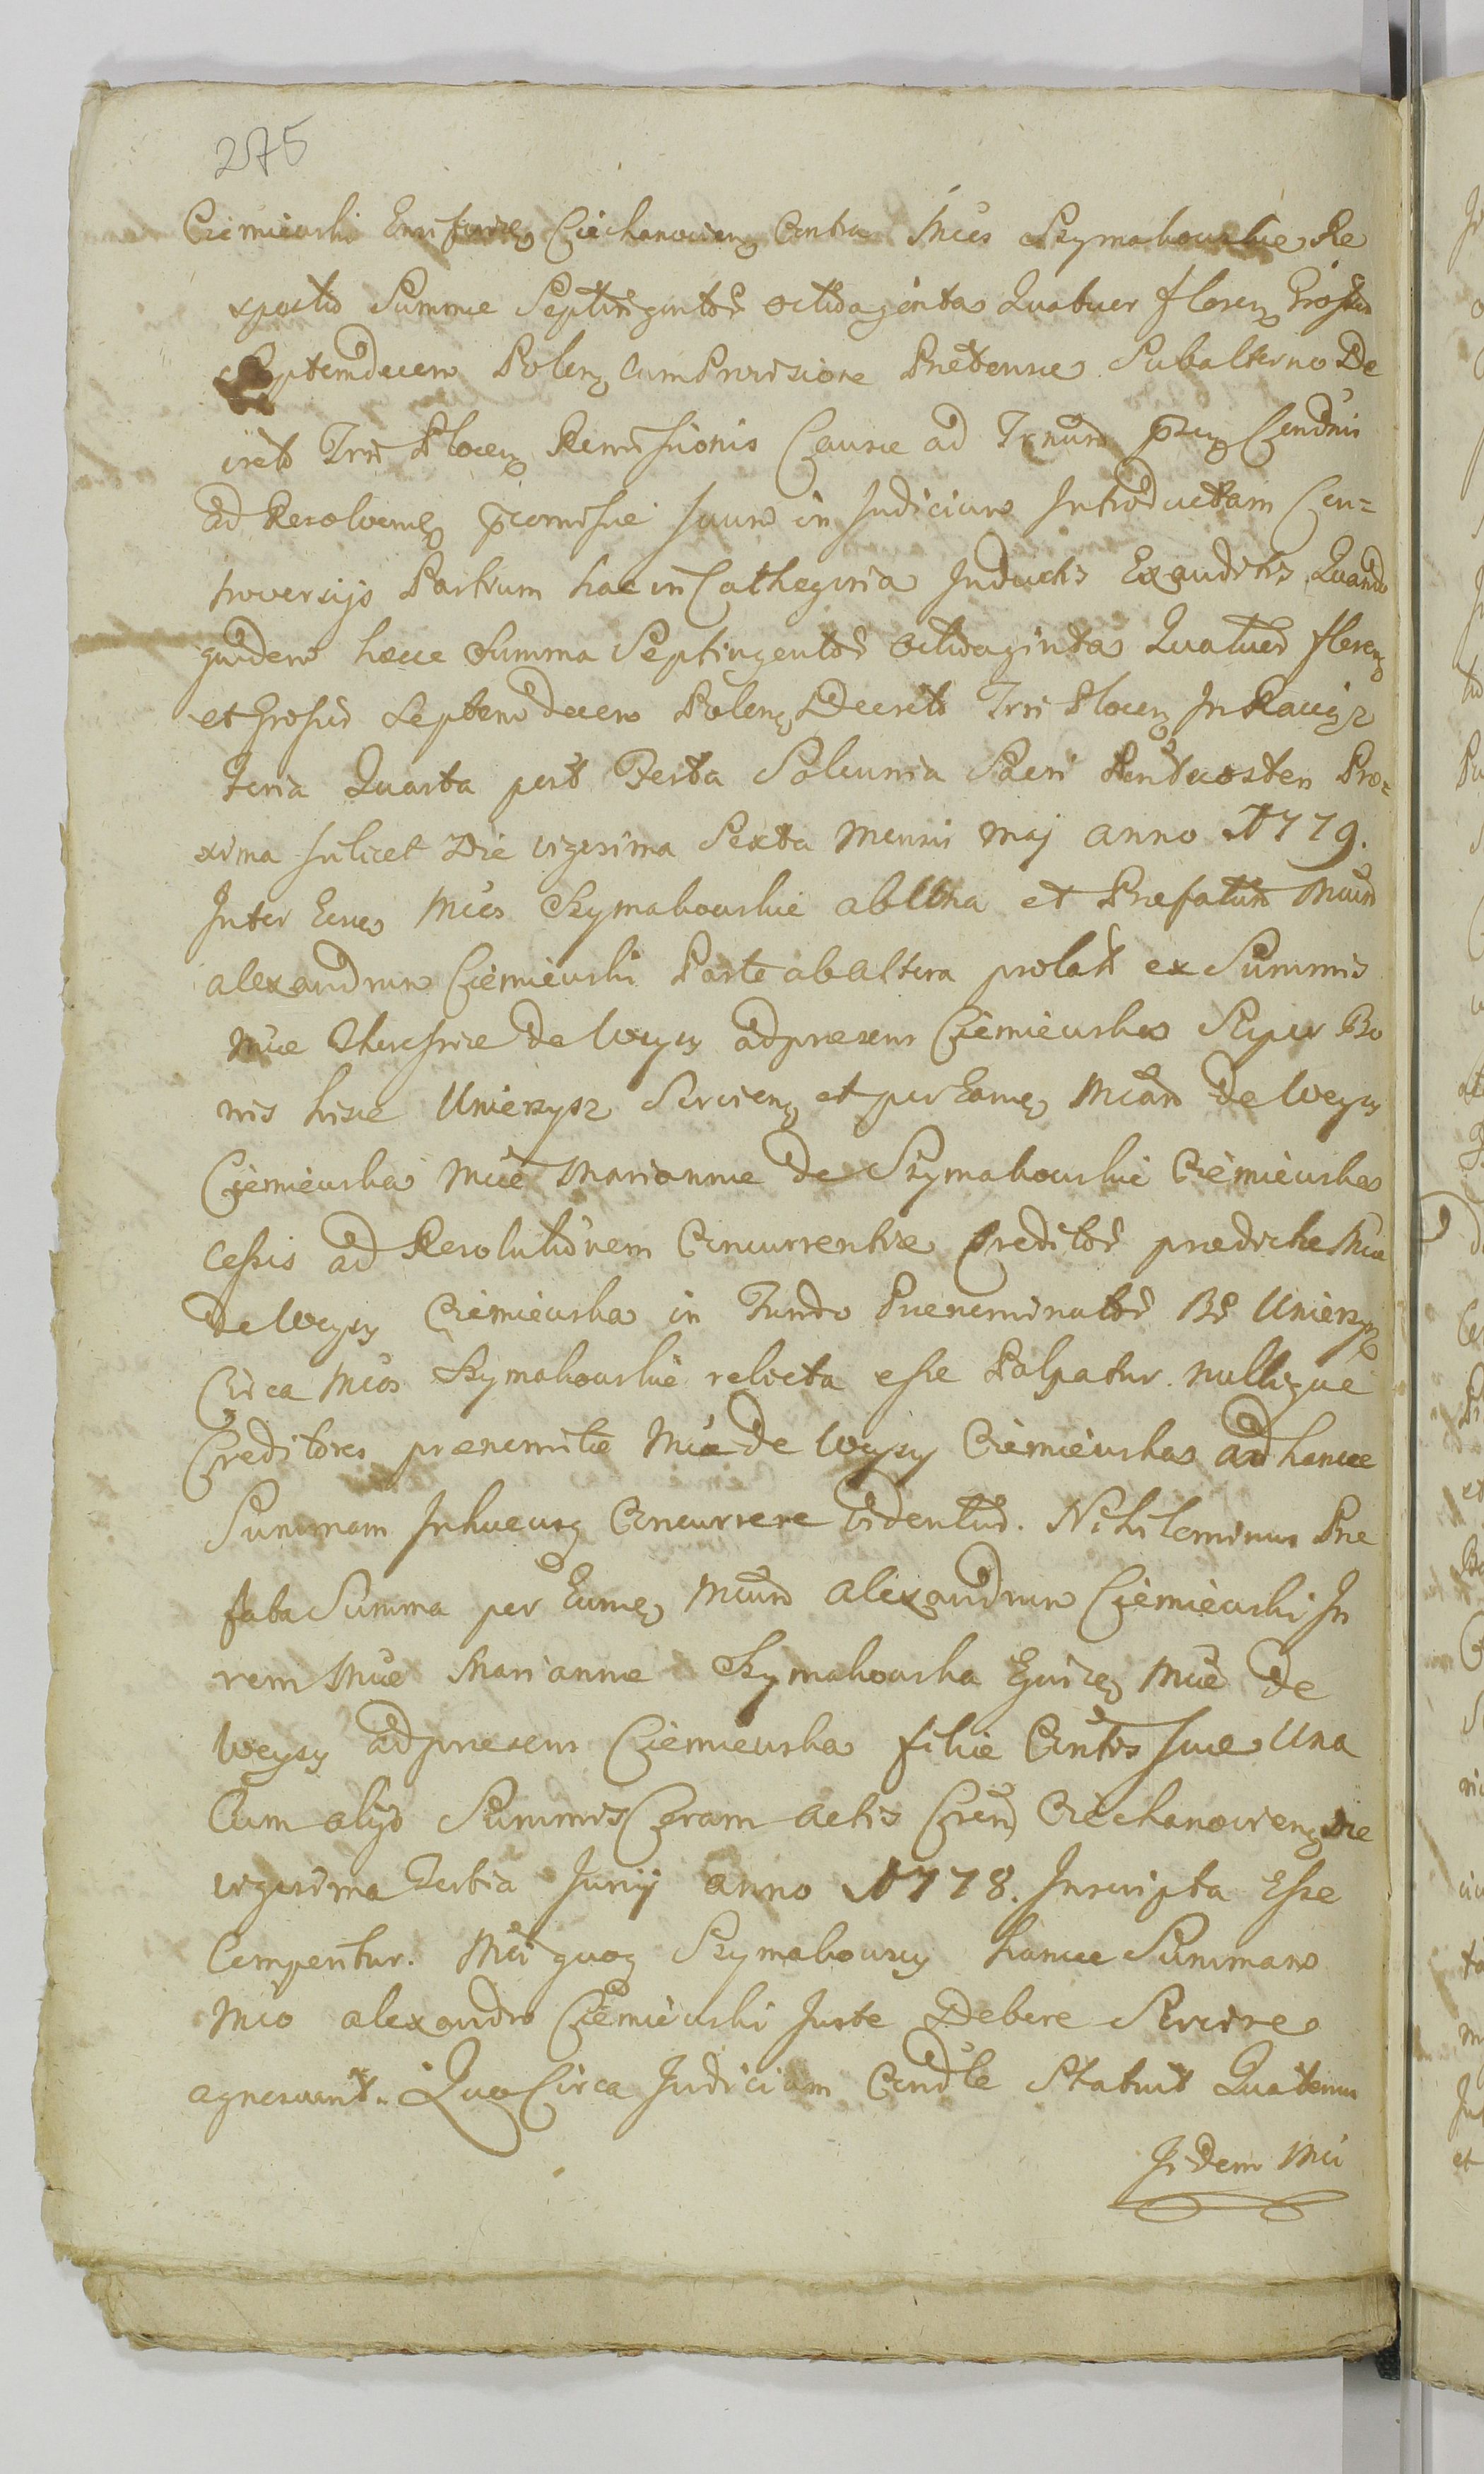 275
Ciemiewski Ensiferiȩ Ciechanovienȩ Contra Mcos Szymakowskie Re
xpostio Summæ Septingentor̃ octuaginta Quatuor floren̄ Grossor̃
Septemdecem Polonȩ cum Provisione Prætensæ Subalterno De
creto Trri Plocenȩ Remissionis Causæ ad Trnum p̄ntȩ Condnis
ad Resolvendȩ præmissæ suum in Judicium Introductam Con=
troversijs Partium hac in Cathegoria Inductis Exauditis, Quando
quidem hæcce Summa Septingentor̃ octuaginta Quatuor floren̄
et Grossor̃ Septemdecem Polonȩ Decreto Trri Plocenȩ In Raciąż
Feria Quarta post Festa Solennia Sacri Pentecosten Pro=
xima scilicet Die vigesima Sexta Mensis Maj anno 1779.
Inter Eosȩ Mcos Szymakowskie ab Una et Præfatum Mcum
alexandrum Ciemiewski Parte ab altera prolato ex Summis
Mcæ Theressiæ de Wessy adpræsens Ciemiewska Super Bo
nis hisce Unierzysz Servienȩ et per Eamȩ Mcam De Wessy
Ciemiewska Mcæ Mariannæ de Szymakowskie Ciemiewska
cessis ad Resolutionem Concurrentiæ Creditor̃ prædictæ Mcæ
de Wessy Ciemiewska in Fundo Prænominator̃ Br̃ Unierzysz
Circa Mcos Szymakowskie relicta esse Palpatur. nullique
Creditores prænomitæ Mcæ de Wessy Ciemiewska ad hancce
Summam Inhucusȩ Concurrere Videntur. Nihilominus Præ
fata Summa per Eumȩ Mcum alexandrum Ciemiewski In
rem Mcæ Mariannæ Szymakowska Mcæ de
Wessy adpræsens Ciemiewska filiæ Contis suæ Una
Cum alijs Summis Coram actis Ciechanoviensȩ Die
vigesima Tertia Junij anno 1778. Inscripta Esse
Comperitur. Mci quoȩ Szymakowscy hancce Summam
Mco alexandro Ciemiewski Juste Debere Servire
agnoscunt. Quo Circa Judicium Condle Statuit Quatenus
Iidem Mci